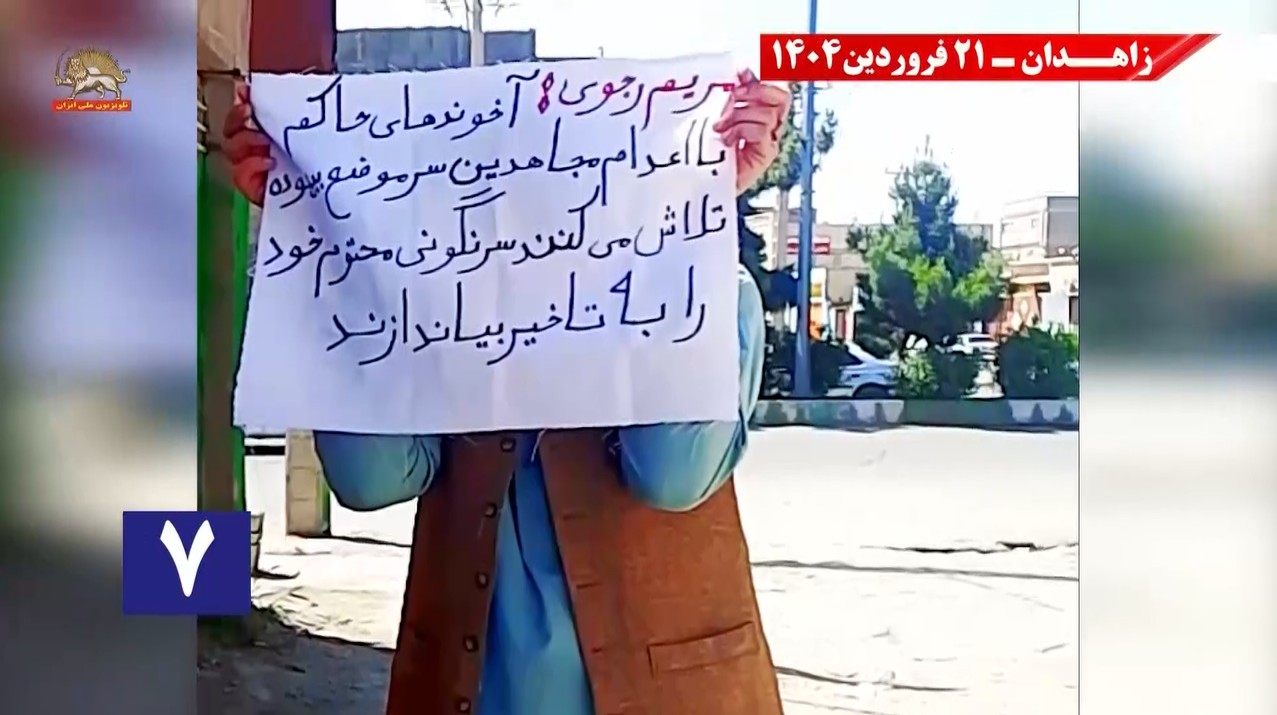 زاهـدان ـ ۲۱ فروردین ۱۴۰۴
تلویزیون ملی ایران
مریم رجوی: آخوندهای حاکم
با اعدام مجاهدین سرموضع بیهوده
تلاش می کنند سرنگونی محتوم خود
را به تاخیر بیاندازند
۷